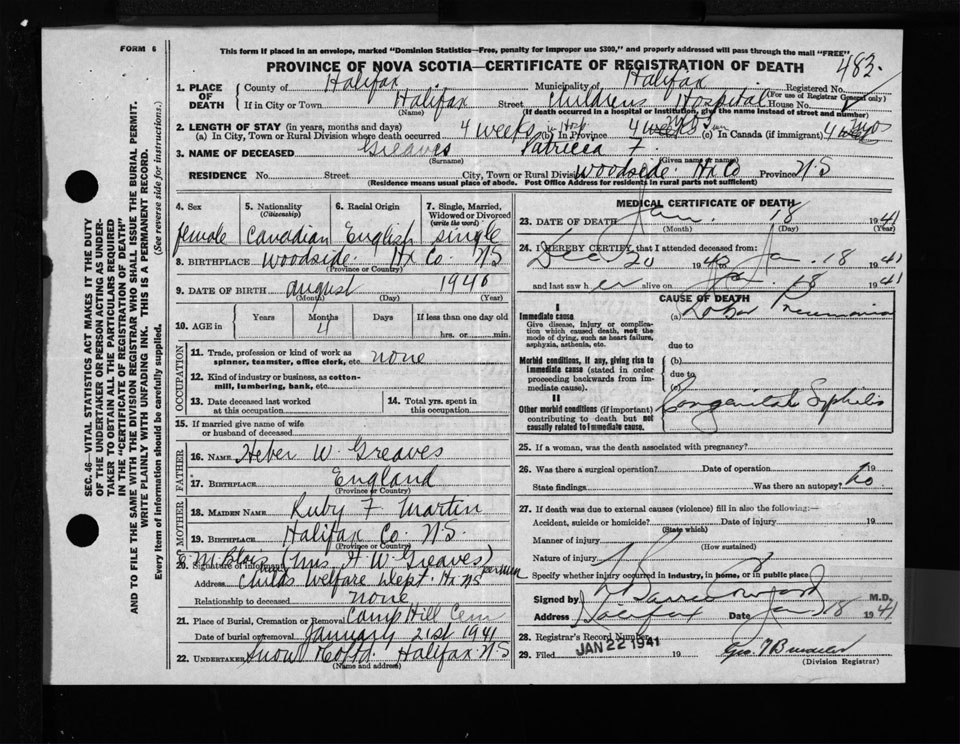 FORM 6
This form if placed in an envelope, marked "Dominion Statistics—Free, penalty for improper use $300," and properly addressed will pass through the mail "FREE"
PROVINCE OF NOVA SCOTIA—CERTIFICATE OF REGISTRATION OF DEATH
483.
1. PLACE OF DEATH
County of Halifax Municipality of Halifax Registered No.
(For use of Registrar General only)
If in City or Town Halifax Street Childrens Hospital House No.
(Name) (If death occurred in a hospital or institution, give the name instead of street and number)
2. LENGTH OF STAY (in years, months and days)
(a) In City, Town or Rural Division where death occurred 4 weeks in Hosp (b) In Province 4 (c) In Canada (if immigrant) 4
3. NAME OF DECEASED Greaves Patricia F.
(Surname) (Given name or names)
RESIDENCE No. Street City, Town or Rural Division Woodside Hx Co Province N.S
(Residence means usual place of abode. Post Office Address for residents in rural parts not sufficient)
4. Sex
female
5. Nationality
(Citizenship)
Canadian
6. Racial Origin
English
7. Single, Married, Widowed or Divorced
(write the word)
single
8. BIRTHPLACE Woodside Hx Co. NS
(Province or Country)
9. DATE OF BIRTH august 1940
(Month) (Day) (Year)
10. AGE in
Years
Months
4
Days
If less than one day old
hrs. or min.
OCCUPATION
11. Trade, profession or kind of work as spinner, teamster, office clerk, etc. none
12. Kind of industry or business, as cotton-mill, lumbering, bank, etc.
13. Date deceased last worked at this occupation
14. Total yrs. spent in this occupation
15. If married give name of wife or husband of deceased
FATHER
16. NAME Heber W. Greaves
17. BIRTHPLACE England
(Province or Country)
MOTHER
18. MAIDEN NAME Ruby F Martin
19. BIRTHPLACE Halifax Co. N.S.
(Province or Country)
20. Signature of informant (Mrs H. W. Greaves)
Address Childs Welfare Dept. Hx NS
Relationship to deceased none
21. Place of Burial, Cremation or Removal Camp Hill Cem
Date of burial or removal January 21st 1941
22. UNDERTAKER Snow & Co Ltd. Halifax N.S
(Name and address)
MEDICAL CERTIFICATE OF DEATH
23. DATE OF DEATH Jan. 18 1941
(Month) (Day) (Year)
24. I HEREBY CERTIFY that I attended deceased from:
Dec 20 1940 Jan. 18 1941
and last saw her alive on Jan. 18 1941
CAUSE OF DEATH
I
Immediate cause
Give disease, injury or complication which caused death, not the mode of dying, such as heart failure, asphyxia, asthenia, etc.
(a) Lobar Pneumonia
due to
Morbid conditions, if any, giving rise to immediate cause (stated in order proceeding backwards from immediate cause).
(b)
due to
(c)
II
Other morbid conditions (if important) contributing to death but not causally related to immediate cause.
Congenital Syphilis
25. If a woman, was the death associated with pregnancy?
26. Was there a surgical operation? Date of operation 19
State findings Was there an autopsy? No
27. If death was due to external causes (violence) fill in also the following:—
Accident, suicide or homicide? Date of injury 19
(State which)
Manner of injury
(How sustained)
Nature of injury
Specify whether injury occurred in industry, in home, or in public place
Signed by M.D.
Address Halifax Date Jan 18 1941
28. Registrar's Record Number
29. Filed JAN 22 1941 19
(Division Registrar)
SEC. 46—VITAL STATISTICS ACT MAKES IT THE DUTY
OF THE UNDERTAKER OR PERSON ACTING AS UNDER-
TAKER TO OBTAIN ALL THE PARTICULARS REQUIRED
IN THE "CERTIFICATE OF REGISTRATION OF DEATH"
AND TO FILE THE SAME WITH THE DIVISION REGISTRAR WHO SHALL ISSUE THE BURIAL PERMIT.
WRITE PLAINLY WITH UNFADING INK. THIS IS A PERMANENT RECORD.
Every item of Information should be carefully supplied. (See reverse side for instructions.)